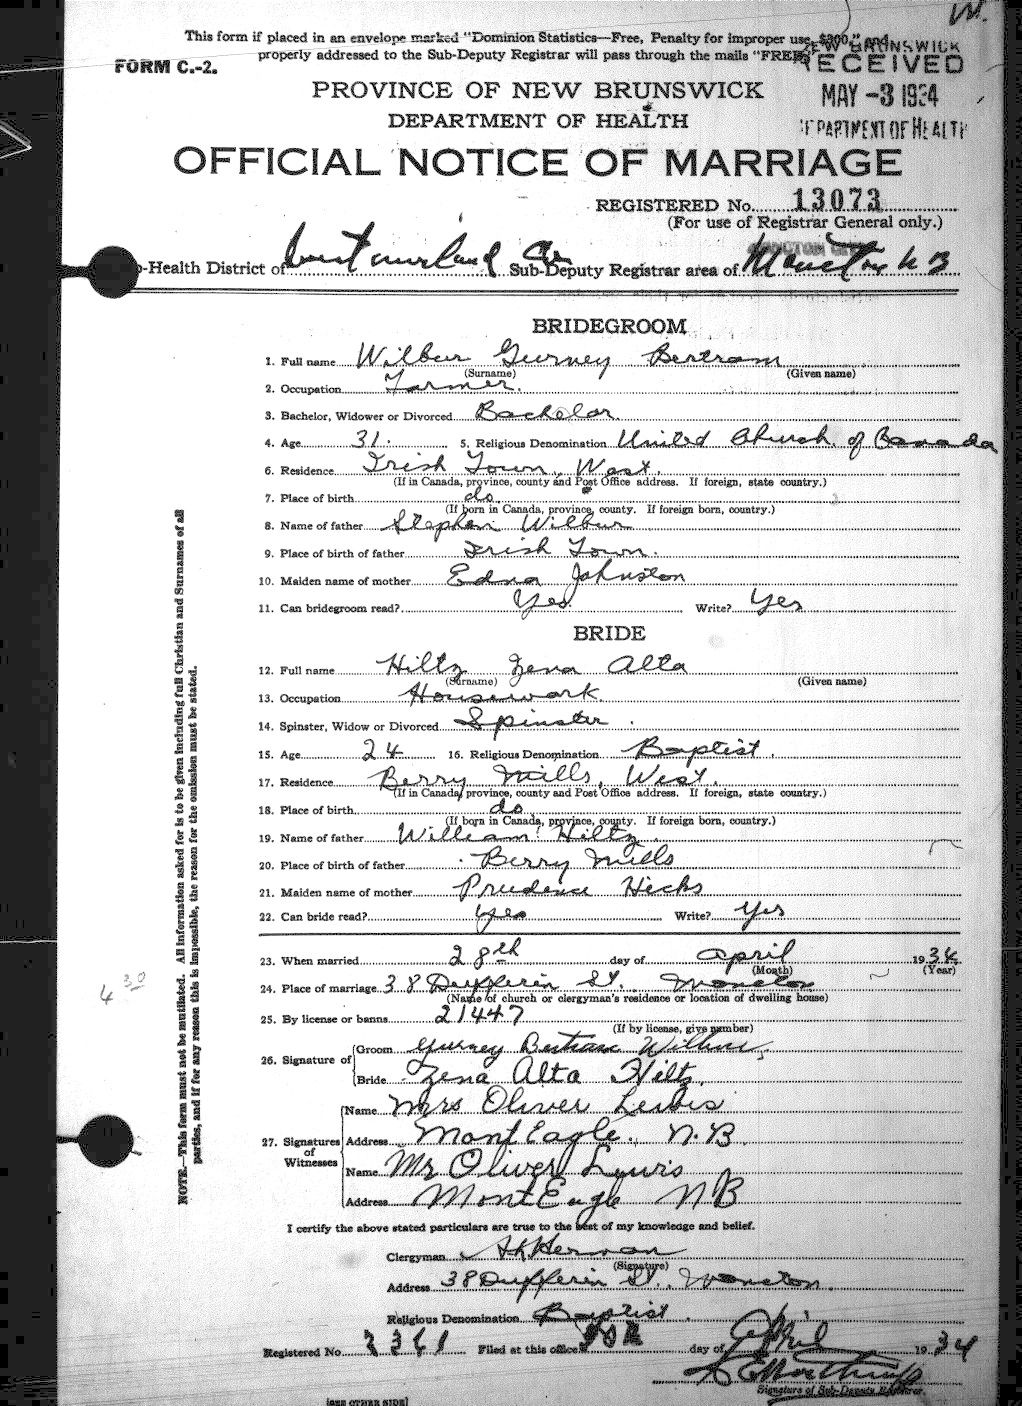 This form if placed in an envelope marked "Dominion Statistics—Free, Penalty for improper use, $300," and
properly addressed to the Sub-Deputy Registrar will pass through the mails "FREE"
FORM C.-2.
NEW BRUNSWICK
RECEIVED
MAY -3 1934
DEPARTMENT OF HEALTH
PROVINCE OF NEW BRUNSWICK
DEPARTMENT OF HEALTH
OFFICIAL NOTICE OF MARRIAGE
REGISTERED No. 13073
(For use of Registrar General only.)
-Health District of Westmorland Co Sub-Deputy Registrar area of Moncton N B
BRIDEGROOM
1. Full name Wilbur Gurney Bertram
(Surname) (Given name)
2. Occupation Farmer.
3. Bachelor, Widower or Divorced Bachelor.
4. Age 31. 5. Religious Denomination United Church of Canada
6. Residence Irish Town, West.
(If in Canada, province, county and Post Office address. If foreign, state country.)
7. Place of birth do
(If born in Canada, province, county. If foreign born, country.)
8. Name of father Stephen Wilbur
9. Place of birth of father Irish Town.
10. Maiden name of mother Edna Johnston
11. Can bridegroom read? Yes Write? Yes
BRIDE
12. Full name Hiltz Zena Alta
(Surname) (Given name)
13. Occupation Housework
14. Spinster, Widow or Divorced Spinster.
15. Age 24 16. Religious Denomination Baptist.
17. Residence Berry Mills, West.
(If in Canada, province, county and Post Office address. If foreign, state country.)
18. Place of birth do
(If born in Canada, province, county. If foreign born, country.)
19. Name of father William Hiltz
20. Place of birth of father Berry Mills
21. Maiden name of mother Prudence Hicks
22. Can bride read? yes Write? yes
23. When married 28th day of April 1934
(Month) (Year)
24. Place of marriage 38 Dufferin St. Moncton
(Name of church or clergyman's residence or location of dwelling house)
25. By license or banns 21447
(If by license, give number)
26. Signature of Groom Gurney Bertram Wilbur
Bride Zena Alta Hiltz
27. Signatures of Witnesses Name Mrs Oliver Lewis
Address Mont Eagle. N.B.
Name Mr Oliver Lewis
Address Mont Eagle N B
I certify the above stated particulars are true to the best of my knowledge and belief.
Clergyman Herman
(Signature)
Address 38 Dufferin St., Moncton.
Religious Denomination Baptist.
Registered No. 3361 Filed at this office day of April 1934
Signature of Sub-Deputy Registrar.
(SEE OTHER SIDE)
NOTE.—This form must not be mutilated. All information asked for is to be given including full Christian and Surnames of all
parties, and if for any reason this is impossible, the reason for the omission must be stated.
4 30